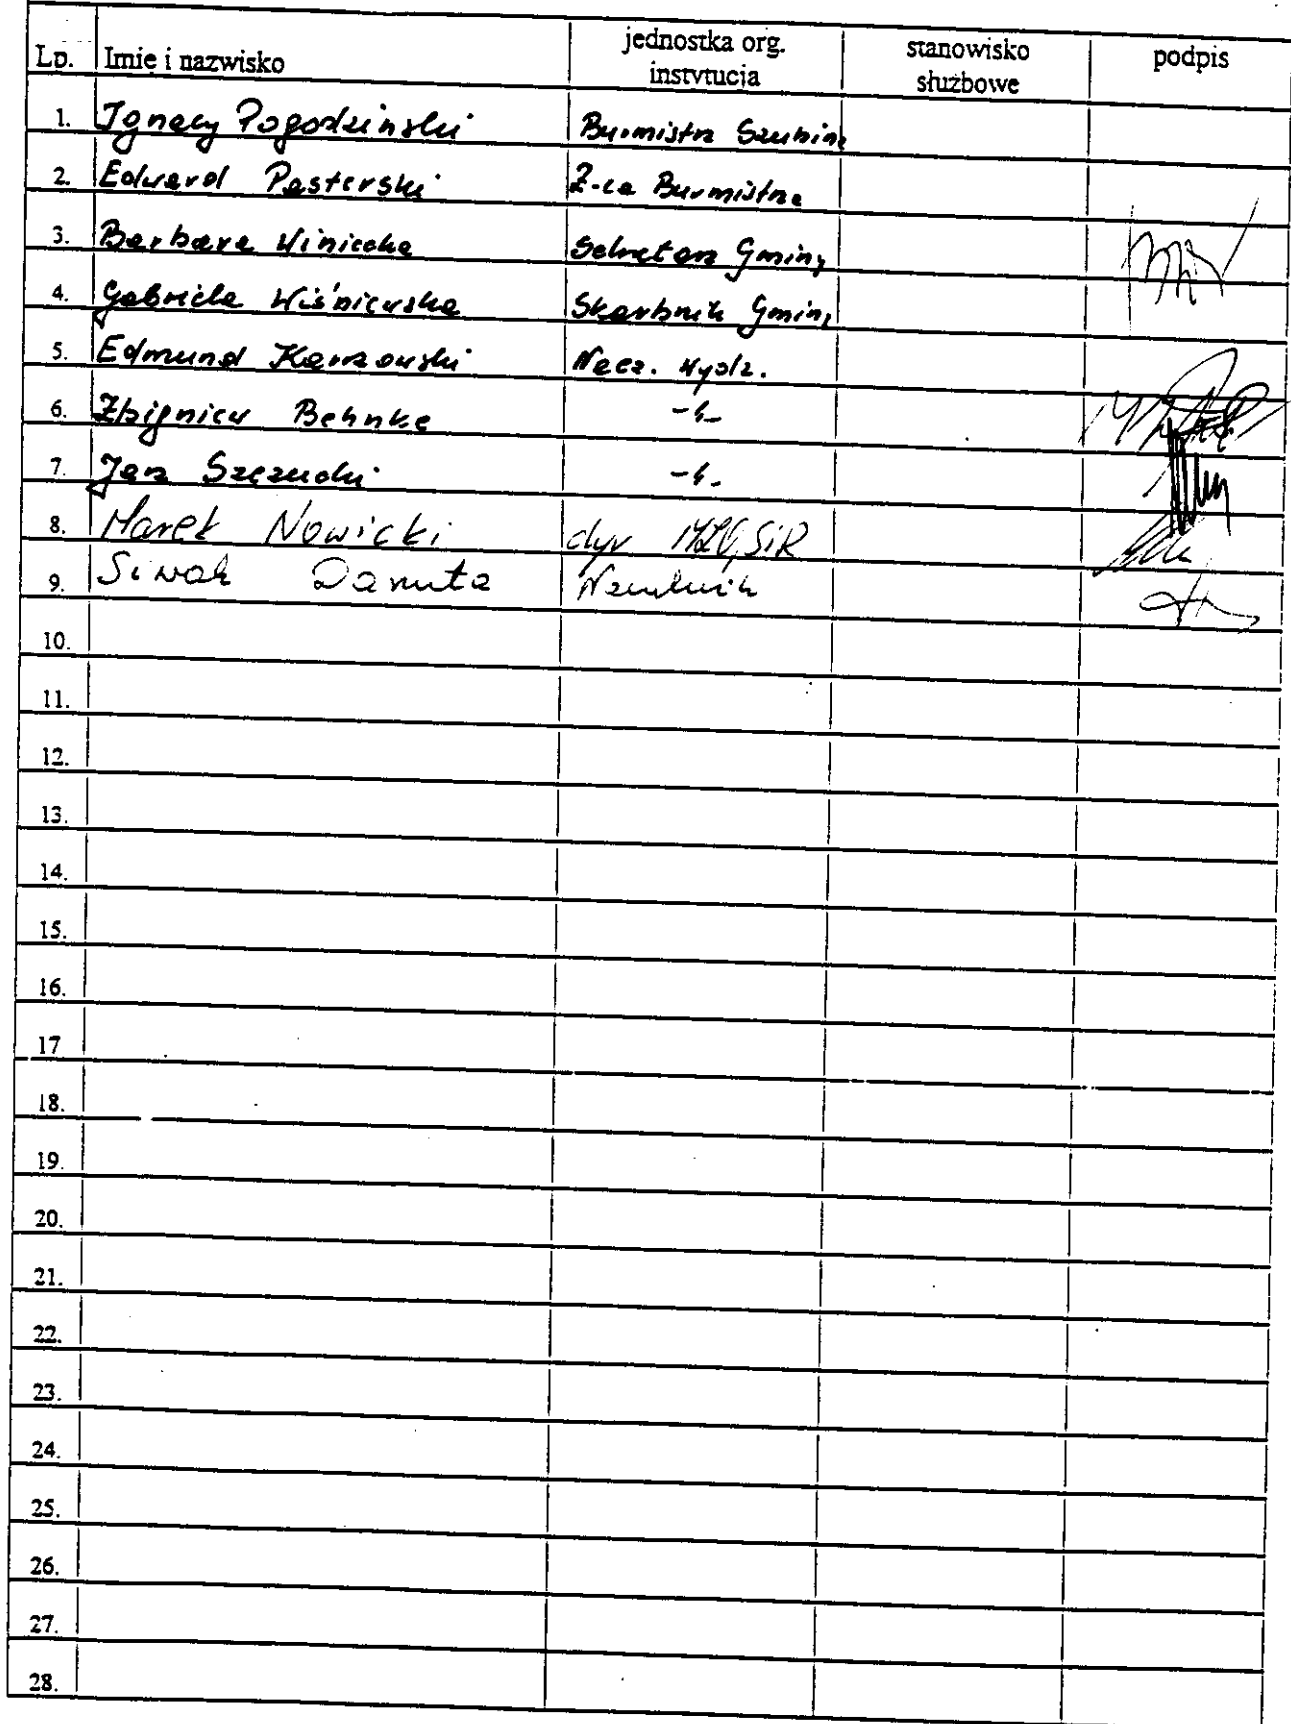 Lp. Imię i nazwisko jednostka org. instytucja stanowisko służbowe podpis
1. Ignacy Pogodziński Burmistrz Szubina
2. Edward Pasterski Z-ca Burmistrza
3. Barbara Winiecka Sekretarz Gminy
4. Gabriela Wiśniewska Skarbnik Gminy
5. Edmund Nacz. Wydz.
6. Zbigniew Behnke -"-
7. -"-
8. Marek Nowicki dyr
9. Siwak Danuta
10.
11.
12.
13.
14.
15.
16.
17
18.
19.
20.
21.
22.
23.
24.
25.
26.
27.
28.